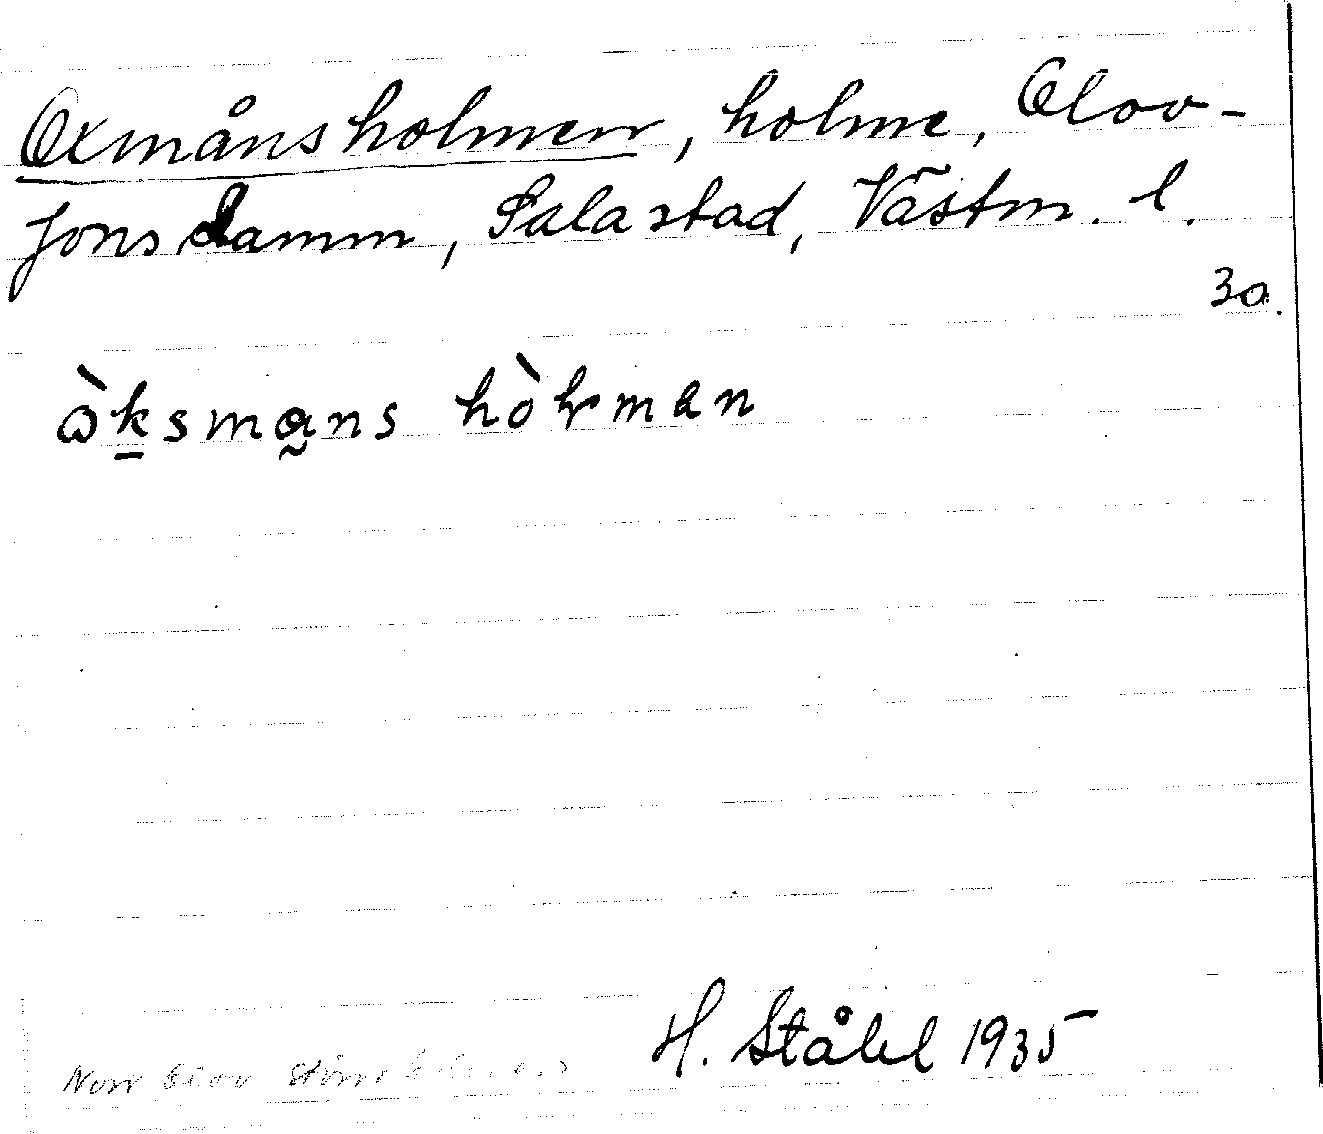 Oxmånsholmen, holme, Olov-
Jons damm, Sala stad, Västm. l.
30.
ὼk̲smɑ̰ns hòḷmən
Norr
H. Ståhl 1935